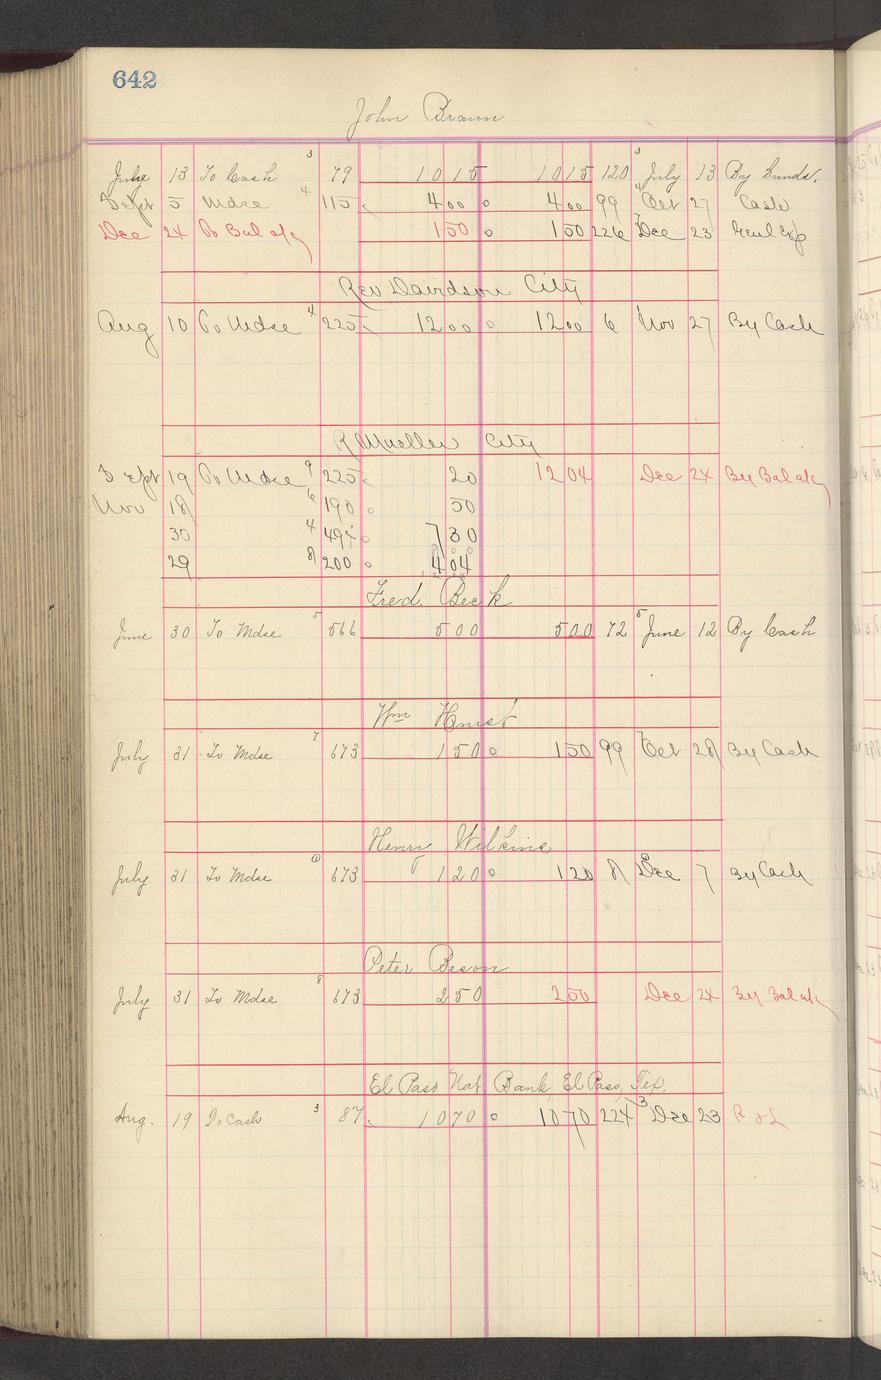 642
John Braun
July 13 To Cash 3 79 10 15 10 15 120 3 July 13 By Sunds.
Sept 5 Mdse 4 115 4 00 4 00 99 4 Oct 27 Cash
Dec 24 To Bal a/c 1 50 1 50 226 7 Dec 23 Genl Exp
Rev Davidson City
Aug 10 To Mdse 4 225 12 00 12 00 6 1 Nov 27 By Cash
R Mueller City
Sept 19 To Mdse 9 225 20 12 04 Dec 24 By Bal a/c
Nov 18 6 190 50
30 4 494 7 30
29 8 200 4 04
Fred. Beck
June 30 To Mdse 5 566 5 00 5 00 72 5 June 12 By Cash
Wm Hurst
July 31 To Mdse 7 673 1 50 1 50 99 7 Oct 28 By Cash
Henry Wilkins
July 31 To Mdse 673 1 20 1 20 8 Dec 7 By Cash
Peter Beson
July 31 To Mdse 8 673 2 50 2 50 Dec 24 By Bal a/c
El Paso Nat. Bank, El Paso, Tex.
Aug. 19 To Cash 3 87 10 70 10 70 224 3 Dec 23 P & L